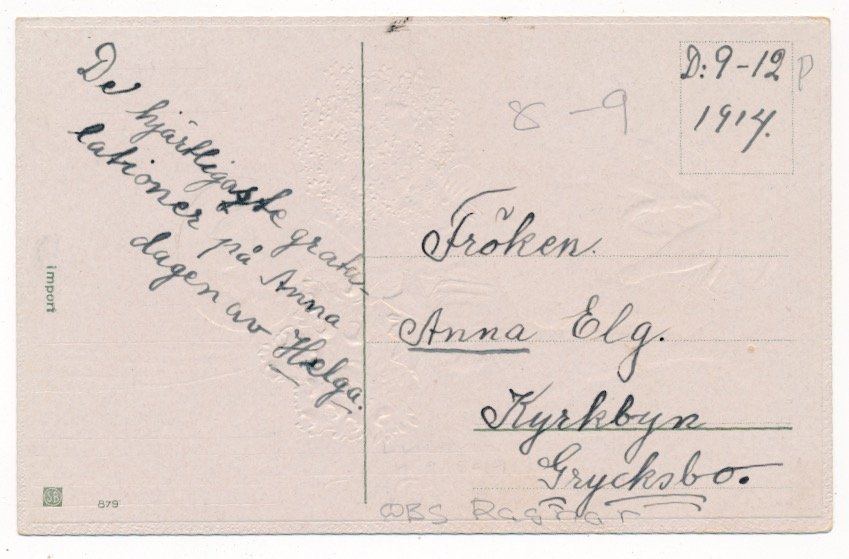 De hjärtligaste gratu-
lationer på Anna
dagen av Helga.
import
879
D: 9-12
1914.
P
8-9
Fröken.
Anna Elg.
Kyrkbyn
Grycksbo.
OBS Ragnar